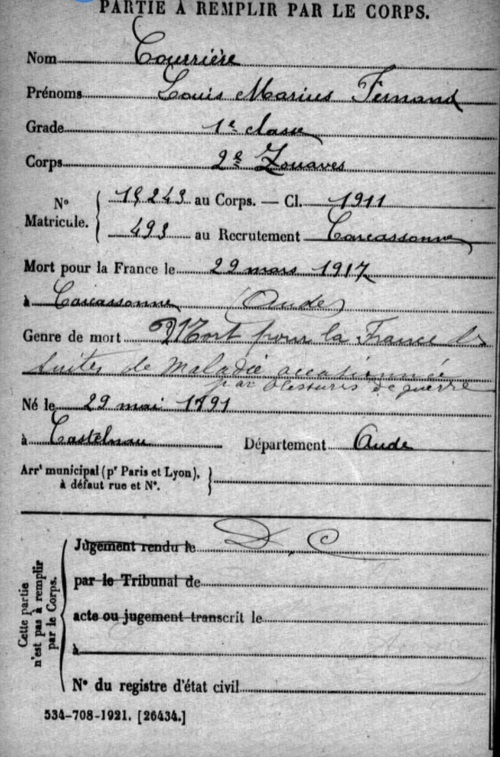 PARTIE À REMPLIR PAR LE CORPS.
Nom Courrière
Prénoms Louis Marius Fernand
Grade 1e classe
Corps 2e Zouaves
N° Matricule. { 19243 au Corps. — Cl. 1911
493 au Recrutement Carcassonne
Mort pour la France le 29 mars 1917
à Carcassonne (Aude)
Genre de mort Mort pour la France des
suites de maladie occasionnée
par blessures de guerre
Né le 29 mai 1891
à Castelnau Département Aude
Arrt municipal (pr Paris et Lyon), à défaut rue et N°. }
Cette partie n'est pas à remplir par le Corps.
Jugement rendu le D. C
par le Tribunal de
acte ou jugement transcrit le
à
N° du registre d'état civil
534-708-1921. [26434.]